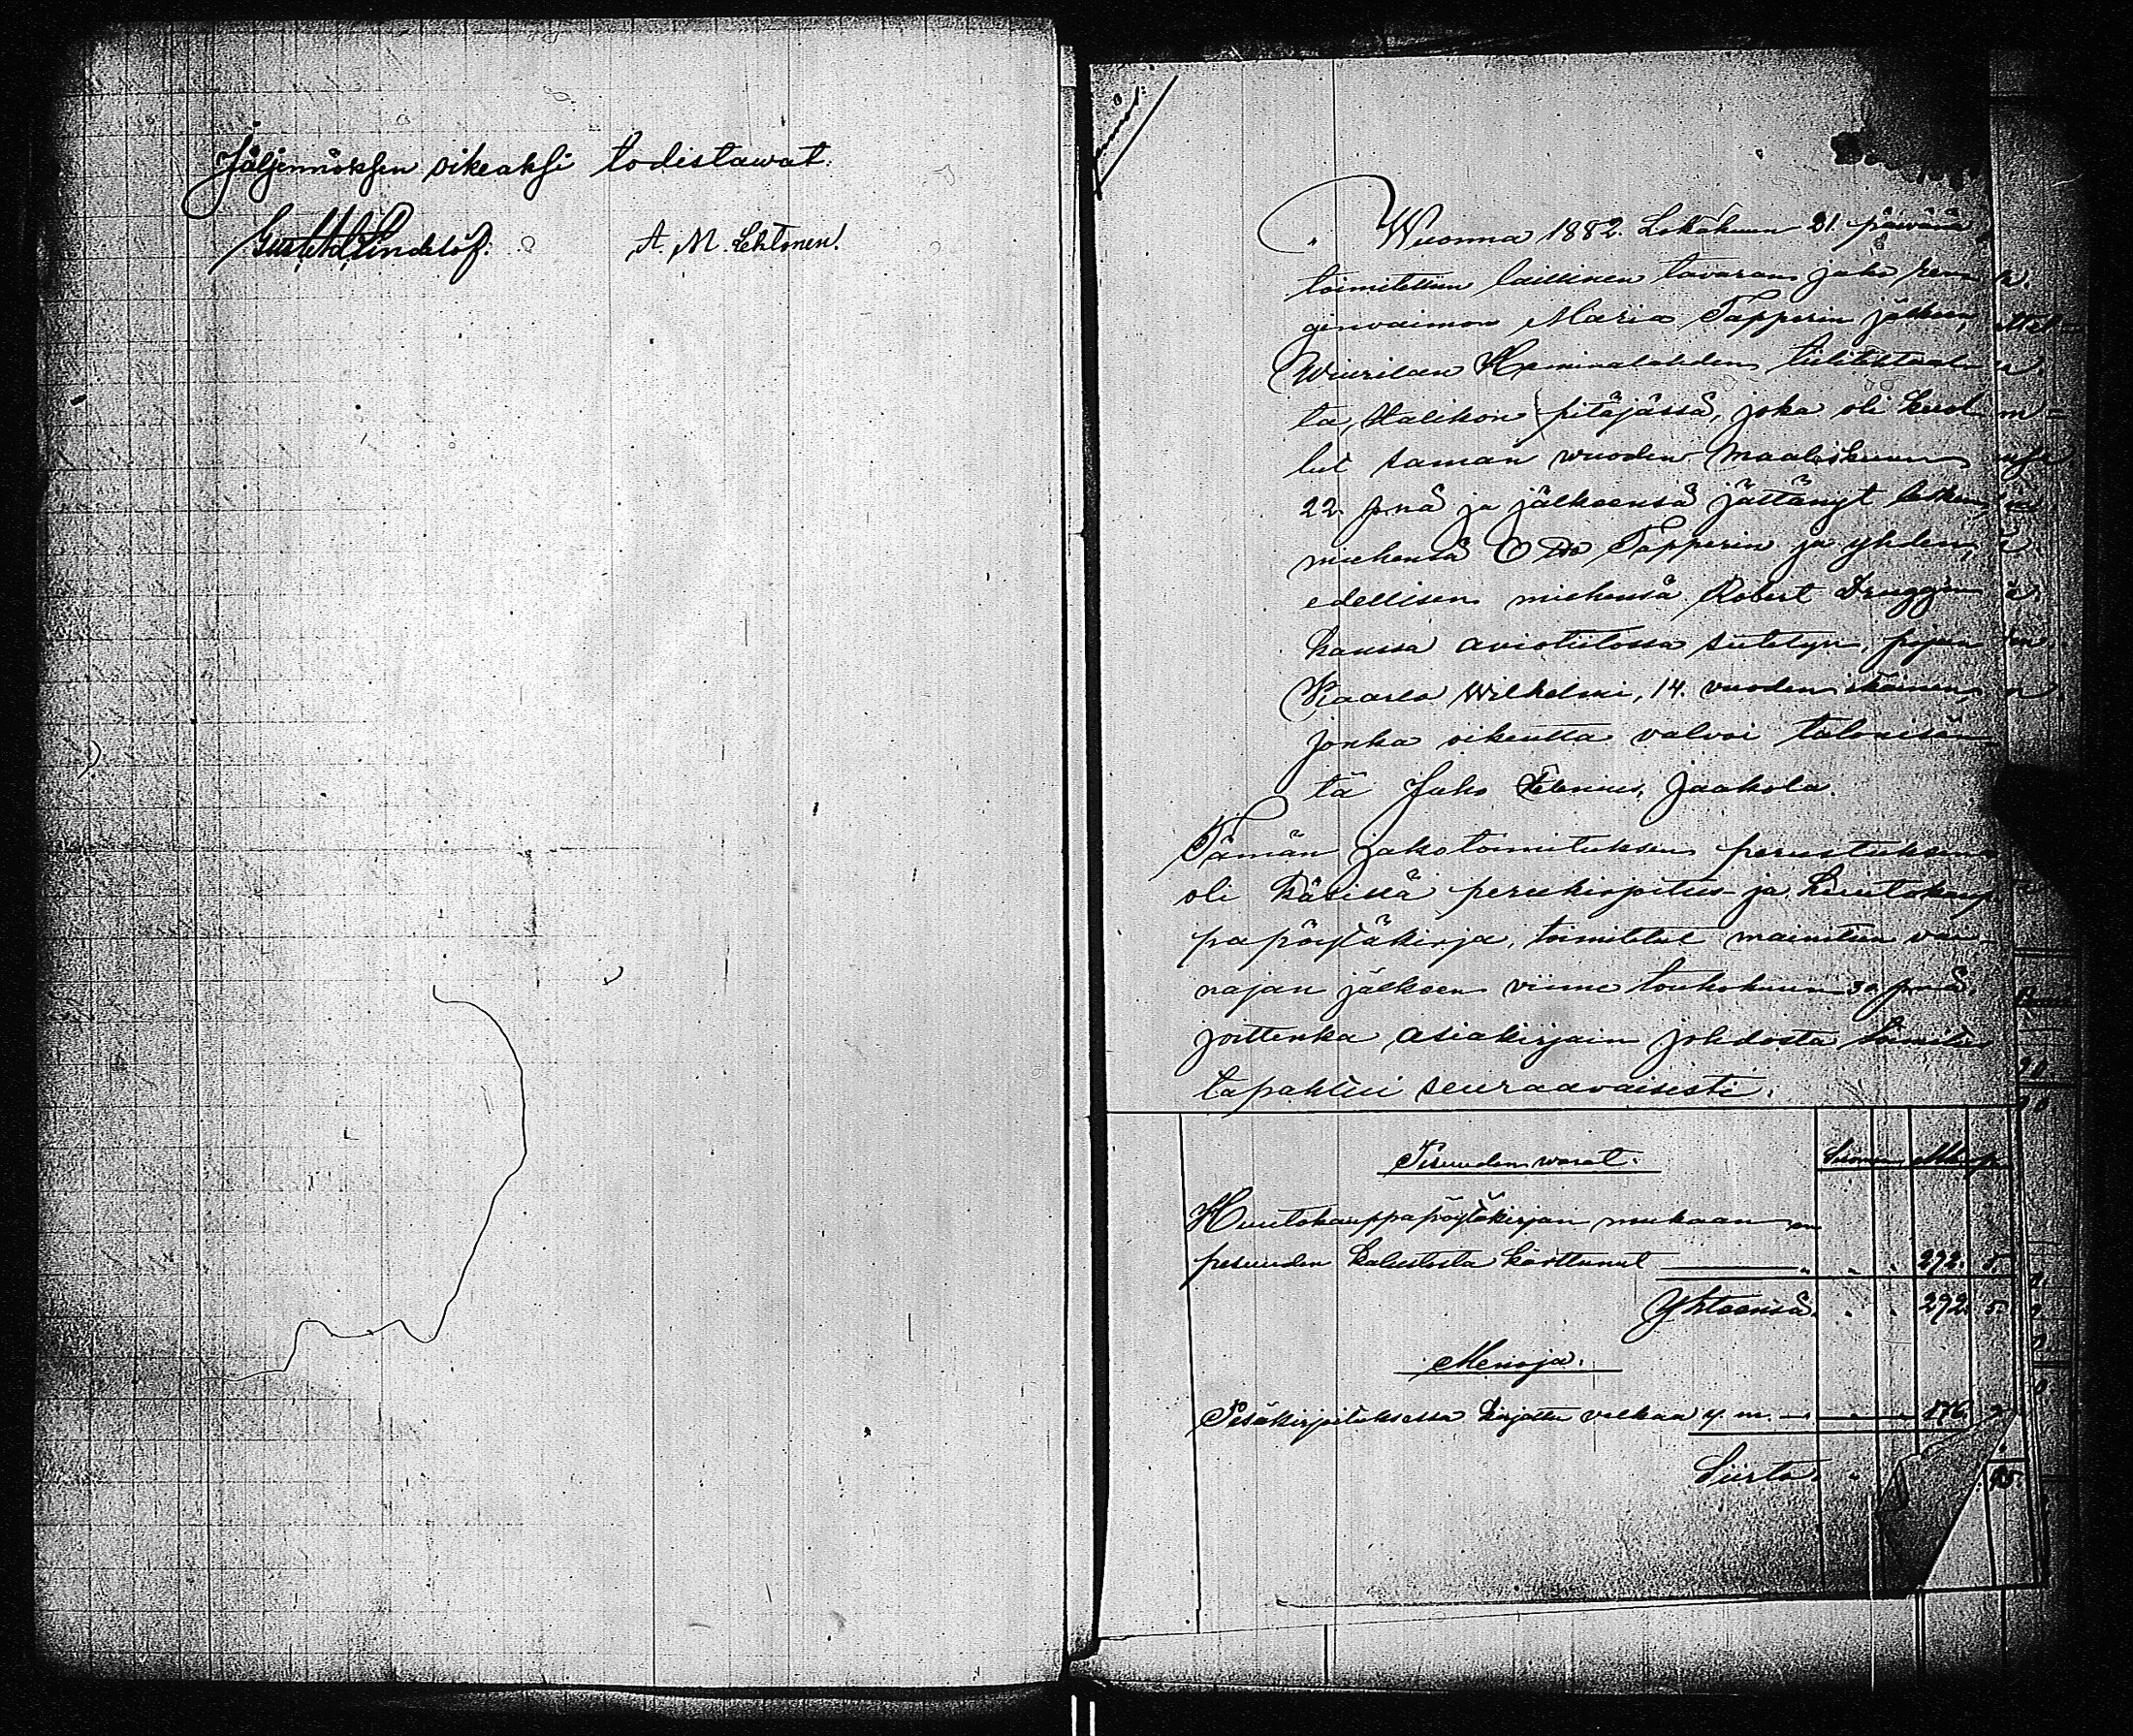 Jäljennöksen oikeaksi todistawat:
Gustaf Lindelöf. A. M. Lehtonen.
Wuonna 1882. Lokakuun 21. päivänä
toimitettiin laillinen tavaran jako ren
ginvaimon Maria Tapperin jälkeen,
Wiurilan tiilitehtaal
ta, Halikon pitäjässä, joka oli kuol
lut saman vuoden Maaliskuun
22. p:nä ja jälkeensä jättänyt lesken,
miehensä Otto Tapperin ja yhden,
edellisen miehensä Robert
kanssa aviotiilossa siitetyn, pojan
Kaarlo Wilhelmi, 14. vuoden ikäinen,
jonka oikeutta valvoi talonisän
tä Juho Jaakola.
Tämän jakotoimituksen perustuksena
oli käsillä perukirjoitus- ja huutokaup
papöytäkirja, toimitetut mainitun vai-
najan jälkeen viime toukokuun 30 p:nä,
joittenka asiakirjain johdosta toimitus
tapahtui seuraavaisesti:
Pesuuden warat. Suomen Mk p.
Huutokauppapöytäkirjan mukaan on
pesuuden kalustosta karttunut 272. 5.
Yhteensä. 272. 5.
Menoja.
Pesäkirjoituksessa kirjattu velkaa y. m. 176.
Siirto.